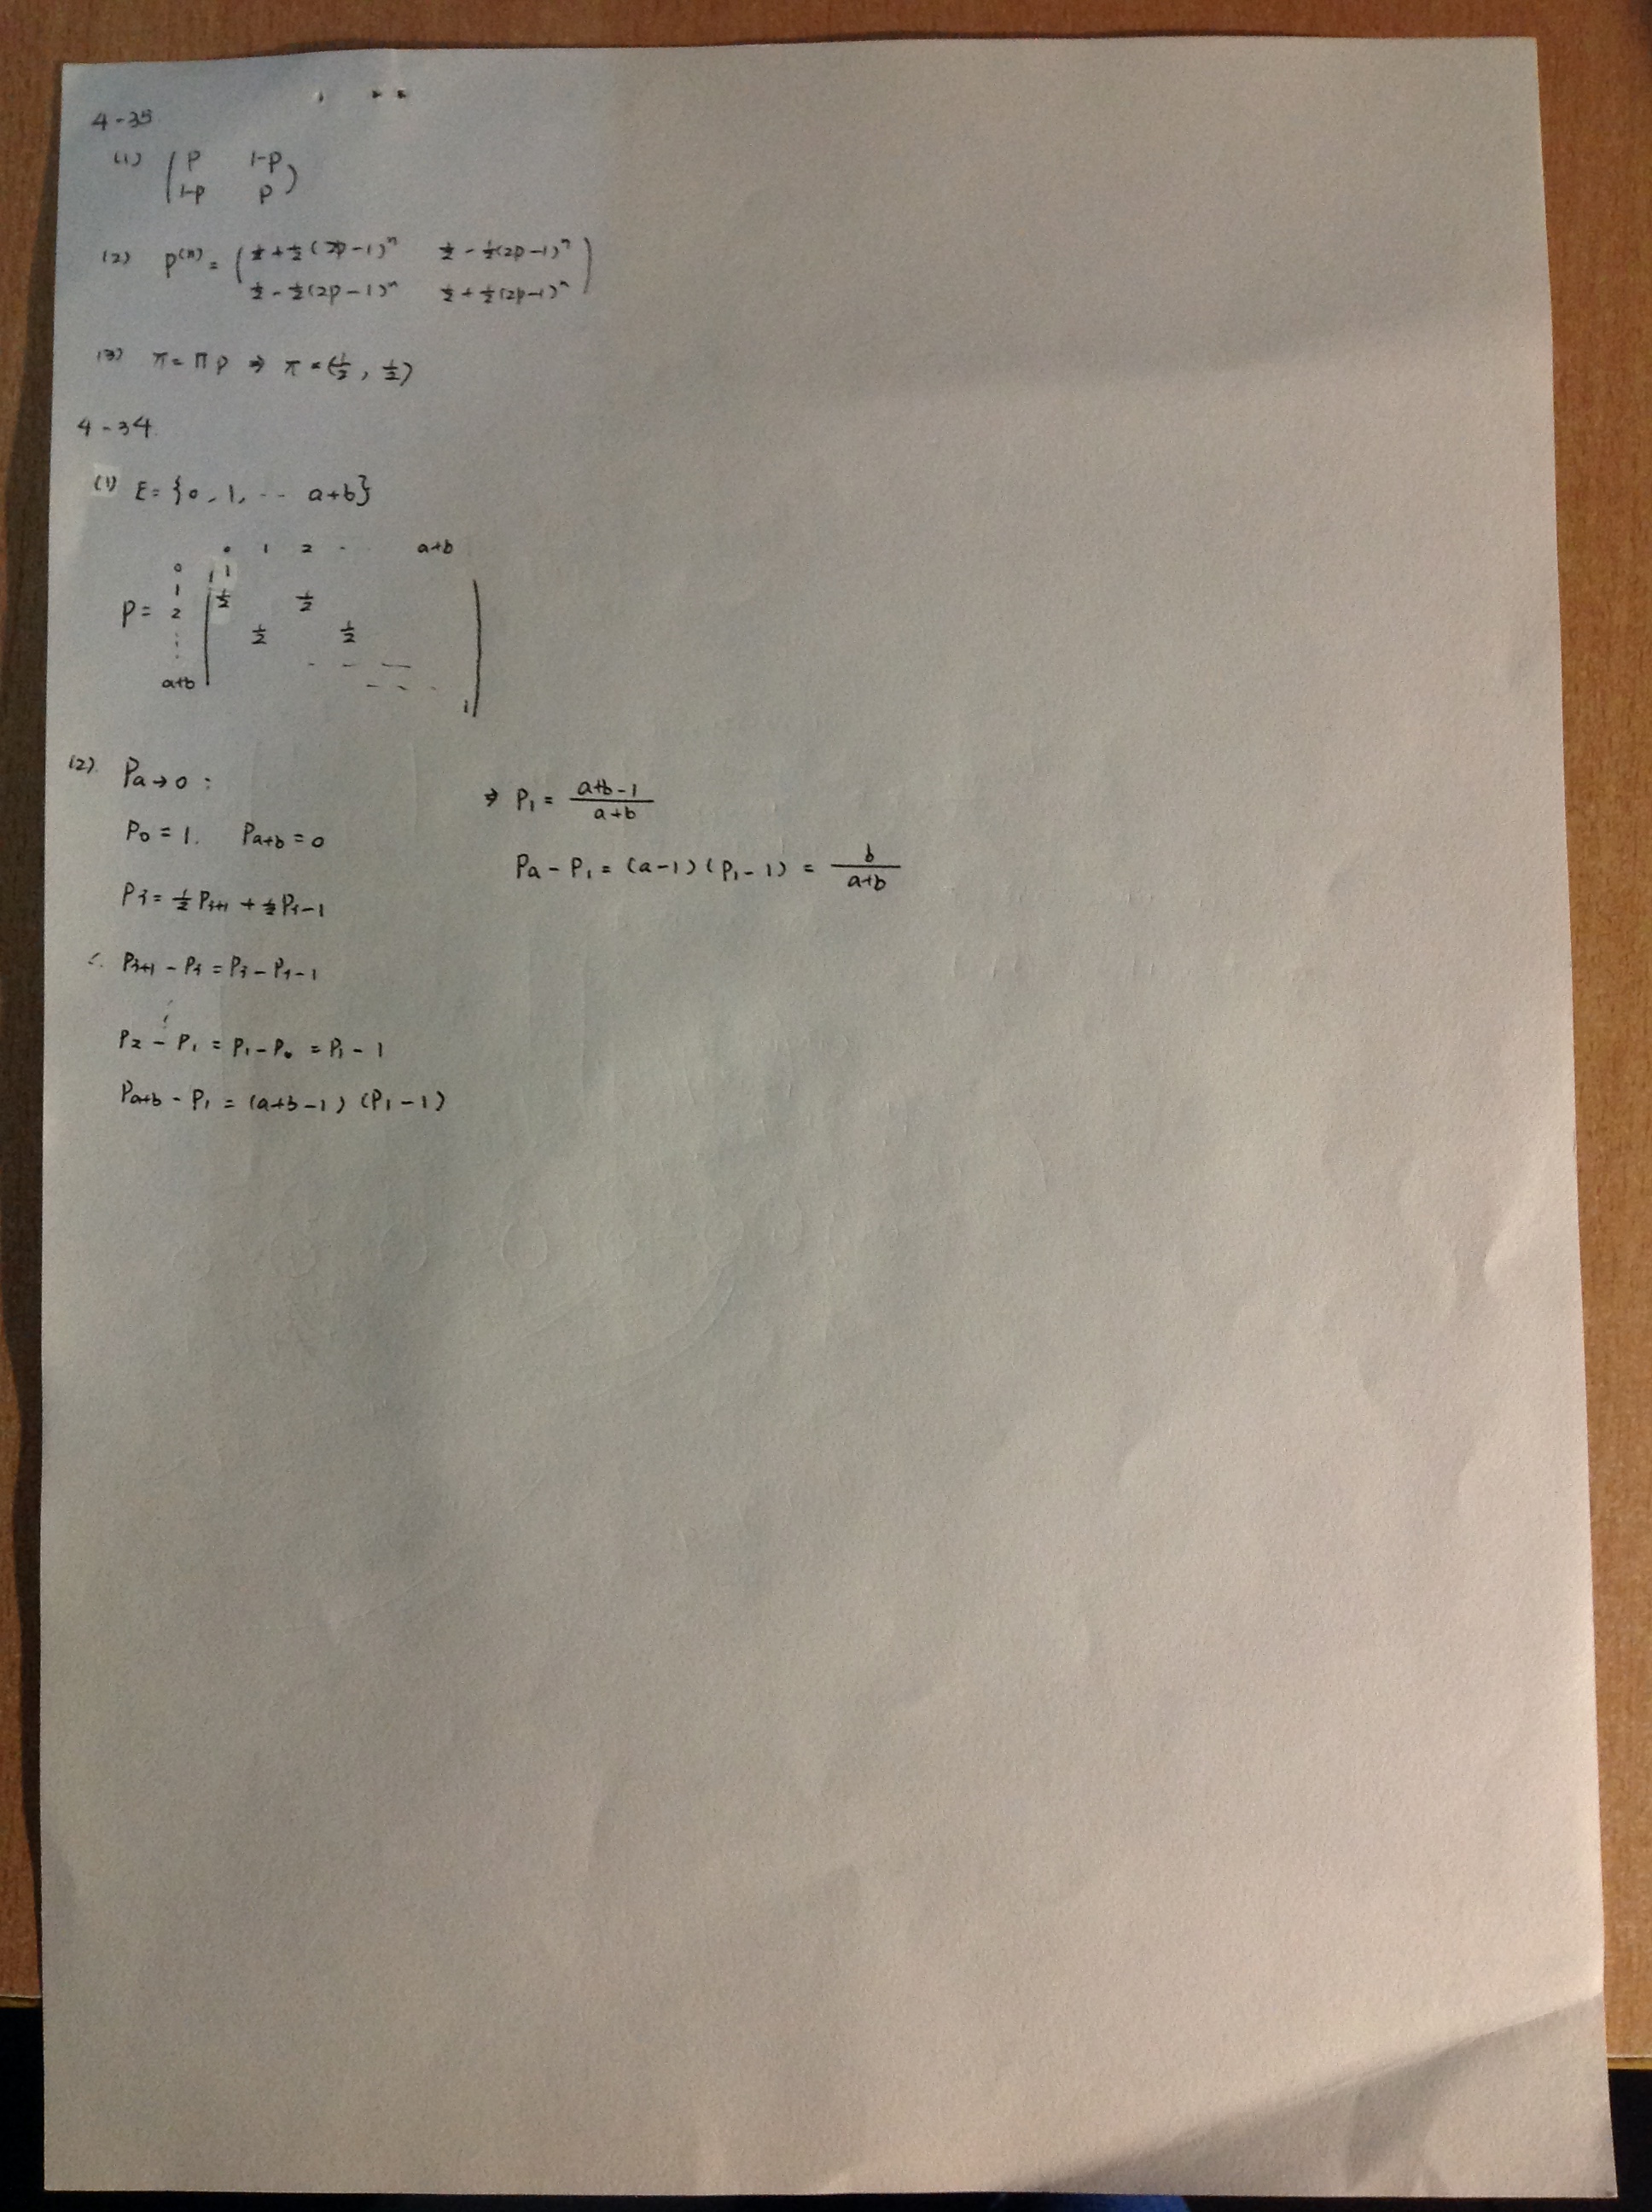 4-35
(1) ( P 1-P
1-P P )
(2) P⁽ⁿ⁾ = ( ½ + ½(2p-1)ⁿ ½ - ½(2p-1)ⁿ
½ - ½(2p-1)ⁿ ½ + ½(2p-1)ⁿ )
(3) π = πP ⇒ π = (½, ½)
4-34
(1) E = {0, 1, ·· a+b}
0 1 2 · · a+b
0 1
1 ½ ½
P = 2 ½ ½
⋮
a+b 1
(2) Pa→0 :
P₀ = 1. Pa+b = 0
Pj = ½Pj+1 + ½Pj-1
∴ Pj+1 - Pj = Pj - Pj-1
⋮
P₂ - P₁ = P₁ - P₀ = P₁ - 1
Pa+b - P₁ = (a+b-1) (P₁ - 1)
⇒ P₁ = (a+b-1)/(a+b)
Pa - P₁ = (a-1)(P₁ - 1) = b/(a+b)